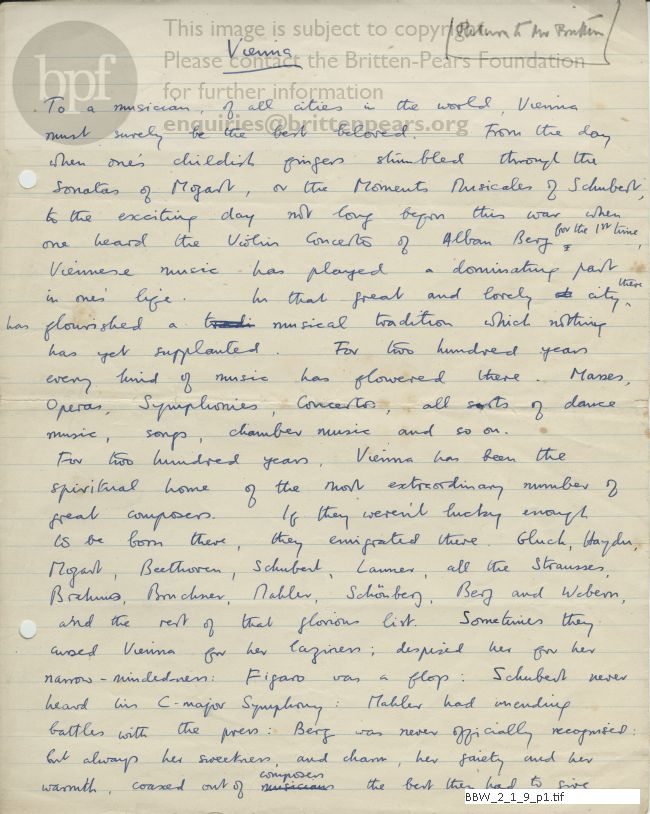 This image is subject to copyright
Please contact the Britten-Pears Foundation
for further information
enquiries@brittenpears.org
bpf
[Return to Mr Britten]
Vienna
To a musician, of all cities in the world, Vienna
must surely be the best beloved. From the day
when one's childish fingers stumbled through the
Sonatas of Mozart, or the Moments Musicales of Schubert,
to the exciting day not long before this war when
one heard the Violin Concerto of Alban Berg for the 1st time,
Viennese music has played a dominating part
in one's life. In that great and lovely city there
has flourished a musical tradition which nothing
has yet supplanted. For two hundred years
every kind of music has flowered there. Masses,
Operas, Symphonies, Concertos, all sorts of dance
music, songs, chamber music and so on.
For two hundred years, Vienna has been the
spiritual home of the most extraordinary number of
great composers. If they weren't lucky enough
to be born there, they emigrated there. Gluck, Haydn,
Mozart, Beethoven, Schubert, Lanner, all the Strausses,
Brahms, Bruckner, Mahler, Schönberg, Berg and Webern,
and the rest of that glorious list. Sometimes they
cursed Vienna for her laziness; despised her for her
narrow-mindedness: Figaro was a flop: Schubert never
heard his C-major Symphony: Mahler had unending
battles with the press: Berg was never officially recognised:
but always her sweetness, and charm, her gaiety and her
warmth, coaxed out of composers the best they had to give
BBW_2_1_9_p1.tif